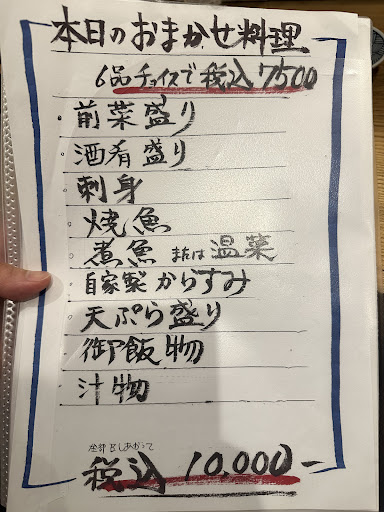 本日のおまかせ料理
6品チョイスで税込7500
・前菜盛り
・酒肴盛り
・刺身
・焼魚
・煮魚 または 温菜
・自家製からすみ
・天ぷら盛り
・御飯物
・汁物
全部召しあがって
税込 10,000-